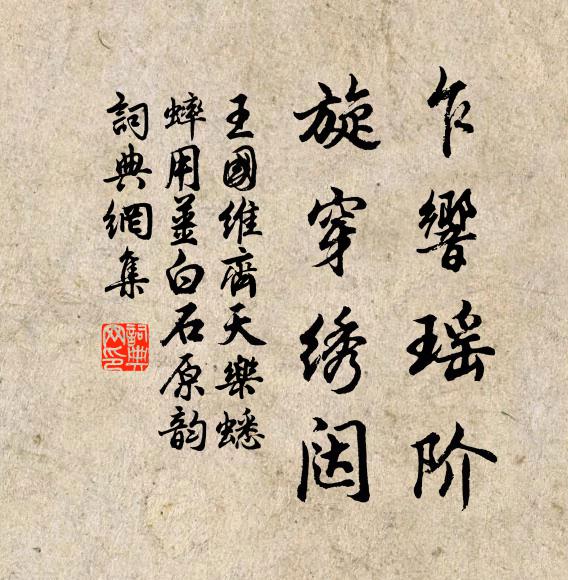 乍響瑶阶
旋穿绣闼
王國維齊天樂蟋
蟀用薑白石原韵
詞典網集
詞典網印